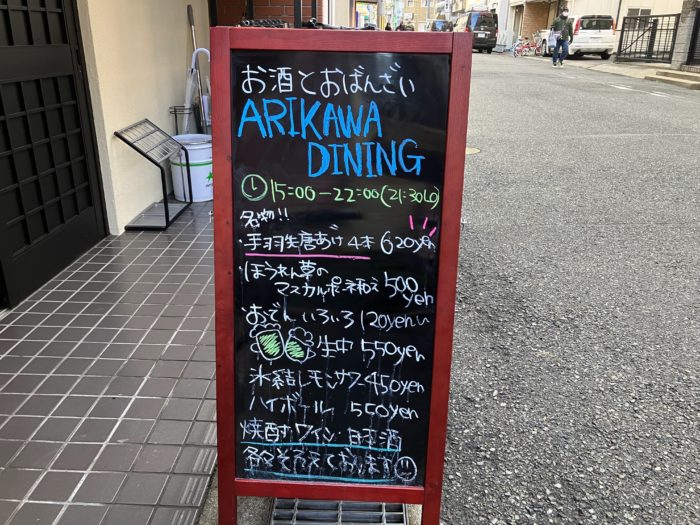 お酒とおばんざい
ARIKAWA
DINING
15:00-22:00(21:30LO)
名物!!
・手羽先唐あげ4本 620yen
ほうれん草の
マスカルポーネ和え 500yen
おでん いろいろ 120yen〜
生中 550yen
氷結レモンサワー 450yen
ハイボール 550yen
焼酎・ワイン・日本酒
各々そろえております